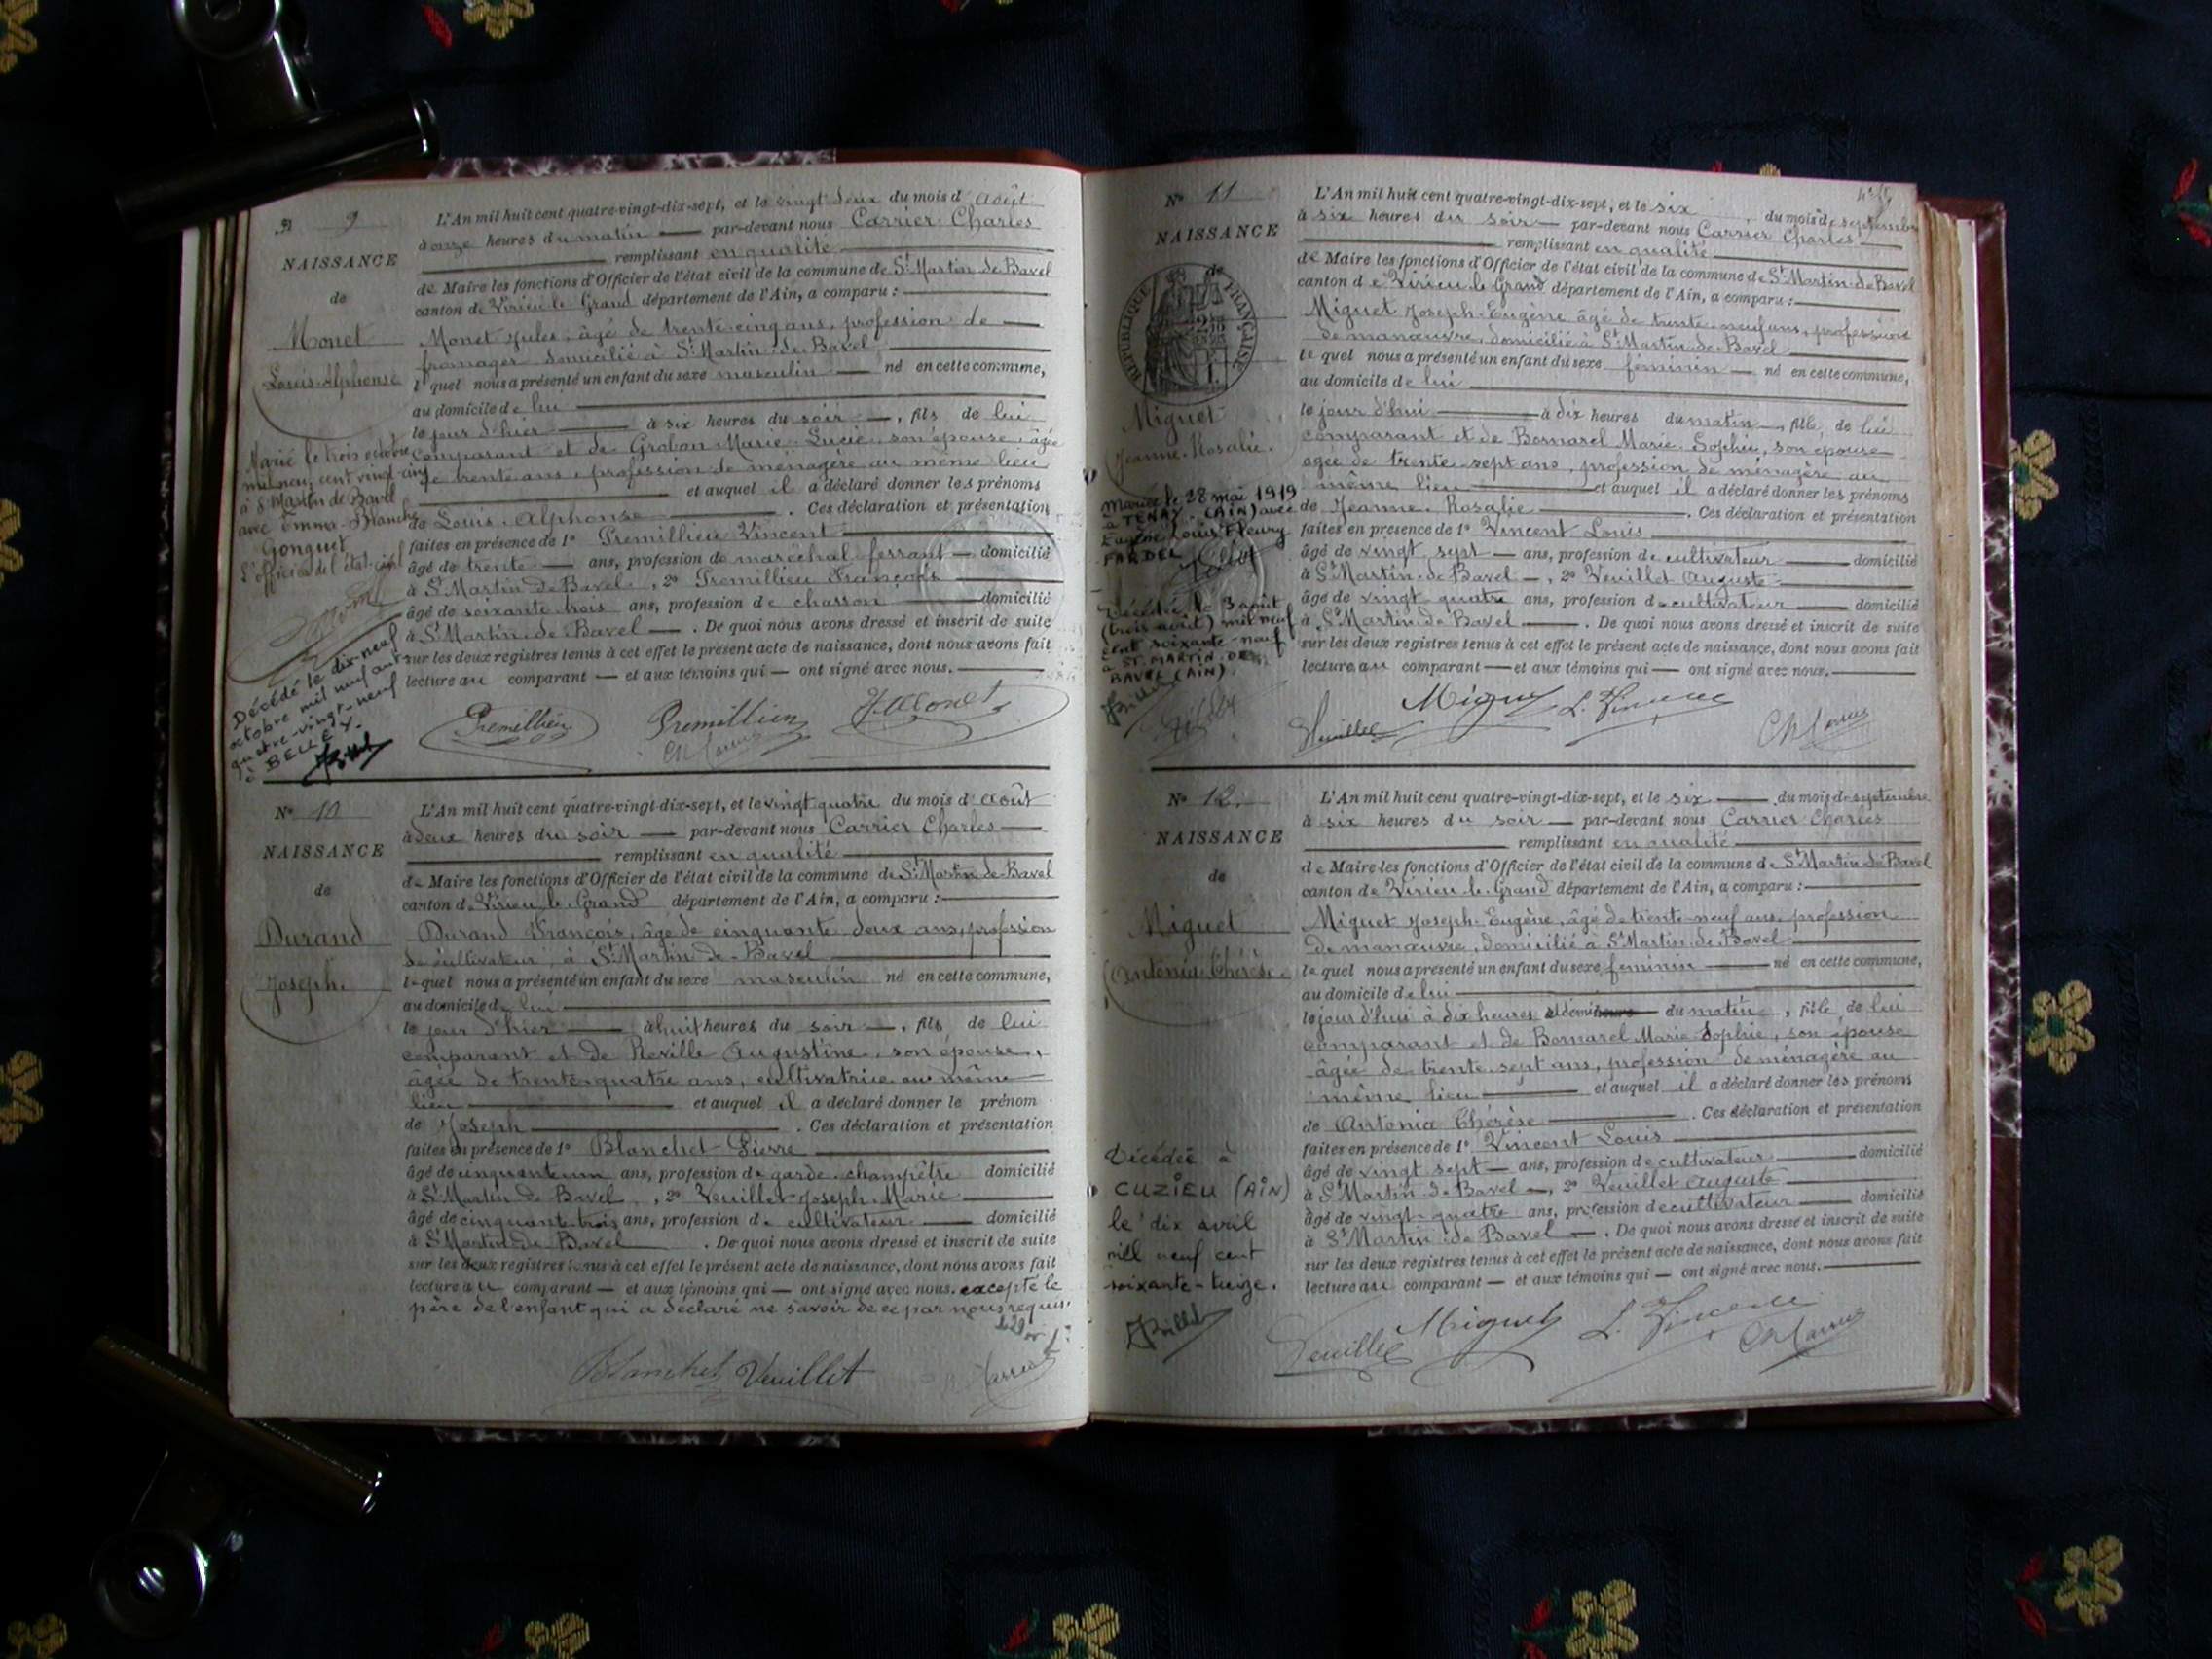 N° 9
NAISSANCE
de
Monet
Louis-Alphonse
Marié le trois octobre
mil neuf cent vingt-cinq
à St Martin de Bavel
avec Emma-Blanche
Gonguet
L'officier de l'état-civil
Décédé le dix-neuf
octobre mil neuf cent
quatre-vingt-neuf
à BELLEY.
L'An mil huit cent quatre-vingt-dix-sept, et le vingt deux du mois d'août
à onze heures du matin par-devant nous Carrier Charles
remplissant en qualité
de Maire les fonctions d'Officier de l'état civil de la commune de St Martin-de-Bavel
canton de Virieu-le-Grand département de l'Ain, a comparu :
Monet Jules, âgé de trente-cinq ans, profession de
fromager domicilié à St Martin-de-Bavel
lequel nous a présenté un enfant du sexe masculin né en cette commune,
au domicile de lui
le jour d'hier à six heures du soir, fils de lui
comparant et de Grobon Marie-Lucie, son épouse, âgée
de trente ans, profession de ménagère au même lieu
et auquel il a déclaré donner les prénoms
de Louis-Alphonse. Ces déclaration et présentation
faites en présence de 1° Premillieu Vincent
âgé de trente ans, profession de maréchal ferrant domicilié
à St Martin-de-Bavel, 2° Premillieu François
âgé de soixante trois ans, profession de charron domicilié
à St Martin-de-Bavel. De quoi nous avons dressé et inscrit de suite
sur les deux registres tenus à cet effet le présent acte de naissance, dont nous avons fait
lecture au comparant et aux témoins qui ont signé avec nous.
Premillieu Premillieu J Monet
Ch Carrier
N° 10
NAISSANCE
de
Durand
Joseph.
L'An mil huit cent quatre-vingt-dix-sept, et le vingt quatre du mois d'août
à deux heures du soir par-devant nous Carrier Charles
remplissant en qualité
de Maire les fonctions d'Officier de l'état civil de la commune de St Martin-de-Bavel
canton de Virieu-le-Grand département de l'Ain, a comparu :
Durand François, âgé de cinquante deux ans, profession
de cultivateur, à St Martin-de-Bavel
lequel nous a présenté un enfant du sexe masculin né en cette commune,
au domicile de lui
le jour d'hier à huit heures du soir, fils de lui
comparant et de Reville Augustine, son épouse,
âgée de trente-quatre ans, cultivatrice au même
lieu et auquel il a déclaré donner le prénom
de Joseph. Ces déclaration et présentation
faites en présence de 1° Blanchet Pierre
âgé de cinquante un ans, profession de garde-champêtre domicilié
à St Martin de Bavel, 2° Veuillet Joseph Marie
âgé de cinquante trois ans, profession de cultivateur domicilié
à St Martin-de-Bavel. De quoi nous avons dressé et inscrit de suite
sur les deux registres tenus à cet effet le présent acte de naissance, dont nous avons fait
lecture au comparant et aux témoins qui ont signé avec nous. excepté le
père de l'enfant qui a déclaré ne savoir de ce par nous requis.
Blanchet Veuillet
N° 11
NAISSANCE
de
RÉPUBLIQUE FRANÇAISE
Miguet
Jeanne-Rosalie.
Mariée le 28 mai 1919
à TENAY (AIN) avec
Eugène Louis Fleury
FARDEL
Décédée le 3 août
(trois août) mil neuf
cent soixante-neuf
à ST. MARTIN-DE-
BAVEL (AIN)
L'An mil huit cent quatre-vingt-dix-sept, et le six du mois de septembre
à six heures du soir par-devant nous Carrier Charles
remplissant en qualité
de Maire les fonctions d'Officier de l'état civil de la commune de St Martin-de-Bavel
canton de Virieu-le-Grand département de l'Ain, a comparu :
Miguet Joseph-Eugène âgé de trente-neuf ans, profession
de manœuvre, domicilié à St Martin-de-Bavel
lequel nous a présenté un enfant du sexe féminin né en cette commune,
au domicile de lui
le jour d'hui à dix heures du matin, fille de lui
comparant et de Bornarel Marie-Sophie, son épouse
âgée de trente-sept ans, profession de ménagère au
même lieu et auquel il a déclaré donner les prénoms
de Jeanne-Rosalie. Ces déclaration et présentation
faites en présence de 1° Vincent Louis
âgé de vingt sept ans, profession de cultivateur domicilié
à St Martin-de-Bavel, 2° Veuillet Auguste
âgé de vingt-quatre ans, profession de cultivateur domicilié
à St Martin-de-Bavel. De quoi nous avons dressé et inscrit de suite
sur les deux registres tenus à cet effet le présent acte de naissance, dont nous avons fait
lecture au comparant et aux témoins qui ont signé avec nous.
Veuillet Miguet L. Vincent Ch Carrier
N° 12.
NAISSANCE
de
Miguet
Antonia Thérèse.
Décédée à
CUZIEU (AIN)
le dix avril
mil neuf cent
soixante-treize.
L'An mil huit cent quatre-vingt-dix-sept, et le six du mois de septembre
à six heures du soir par-devant nous Carrier Charles
remplissant en qualité
de Maire les fonctions d'Officier de l'état civil de la commune de St Martin-de-Bavel
canton de Virieu-le-Grand département de l'Ain, a comparu :
Miguet Joseph-Eugène, âgé de trente-neuf ans, profession
de manœuvre, domicilié à St Martin-de-Bavel
lequel nous a présenté un enfant du sexe féminin né en cette commune,
au domicile de lui
le jour d'hui à dix heures et demi heures du matin, fille de lui
comparant et de Bornarel Marie-Sophie, son épouse
âgée de trente-sept ans, profession de ménagère au
même lieu et auquel il a déclaré donner les prénoms
de Antonia Thérèse. Ces déclaration et présentation
faites en présence de 1° Vincent Louis
âgé de vingt sept ans, profession de cultivateur domicilié
à St Martin-de-Bavel, 2° Veuillet Auguste
âgé de vingt-quatre ans, profession de cultivateur domicilié
à St Martin-de-Bavel. De quoi nous avons dressé et inscrit de suite
sur les deux registres tenus à cet effet le présent acte de naissance, dont nous avons fait
lecture au comparant et aux témoins qui ont signé avec nous.
Veuillet Miguet L. Vincent Ch Carrier